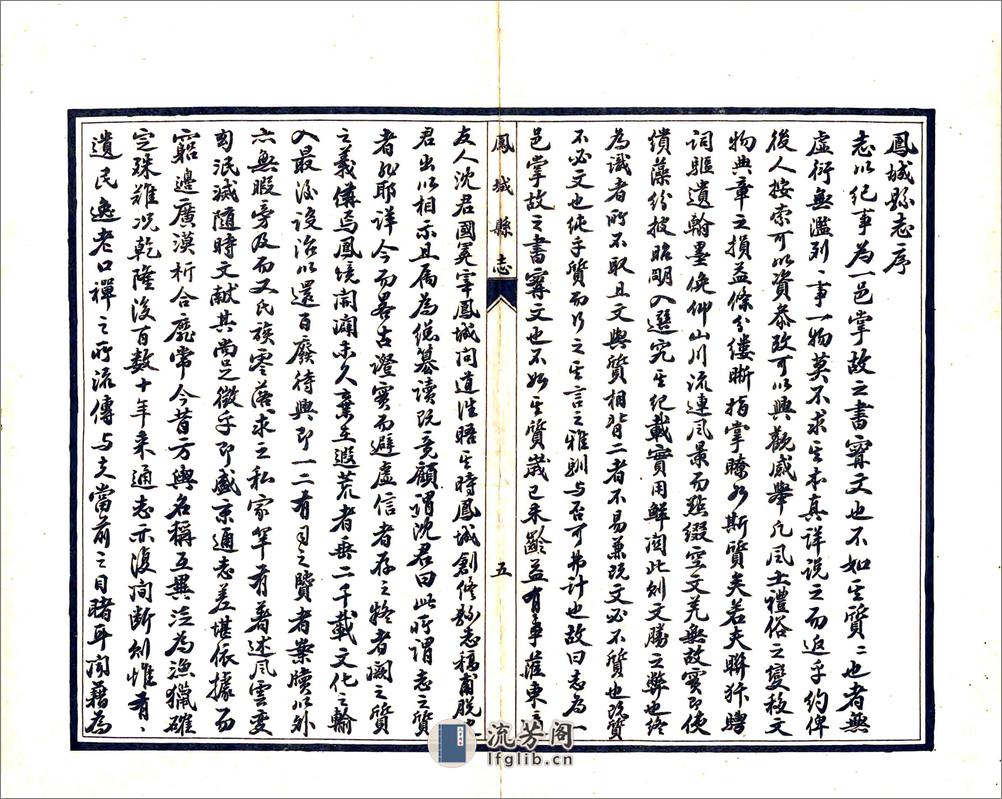 鳳城縣志序
志以紀事為一邑掌故之書寧文也不如其質二也者無
虛衍無濫列一事一物莫不求其本真詳說之而返乎約俾
後人按索可以資恭攷可以興觀感舉凡風土禮俗之變移文
物典章之損益條分縷晰指掌瞭如斯質矣若夫駢
詞驅遣翰墨俛仰山川流連風景而點綴空文羌無故實即使
繢藻紛披昭明入選究其紀載實用鮮關此則文勝之弊也終
為識者所不取且文與質相背二者不易兼玩文必不質也玩質
不必文也純乎質而行之其言之雅馴與否可弗計也故曰志為一
邑掌故之書寧文也不如其質歲己未齡益有事薩東
鳳城縣志
五
友人沈君國冕宰鳳城向道往晤其時鳳城創修縣志稿甫脫
君出以相示且屬為總纂讀既竟顧謂沈君曰此所謂志之質
者非耶詳今而畧古澄實而避虛信者存之疑者闕之質
之義備焉鳳境閉瀾未久棄在遐荒者垂二千載文化之輸
入最後設治以還百廢待興即一二有司之賢者案牘以外
亦無暇旁及而又氏族零落求之私家罕有著述風雲變
幻泯滅隨時文獻其尚足徵乎即盛京通志差堪依據而
窮邊廣漠析合靡常今昔方輿名稱互異泛為漁獵確
定殊難况乾隆後百數十年來通志亦復間斷則惟有
遺民逸老口禪之所流傳与夫當前之目睹耳聞藉為
流芳阁
lfglib.cn